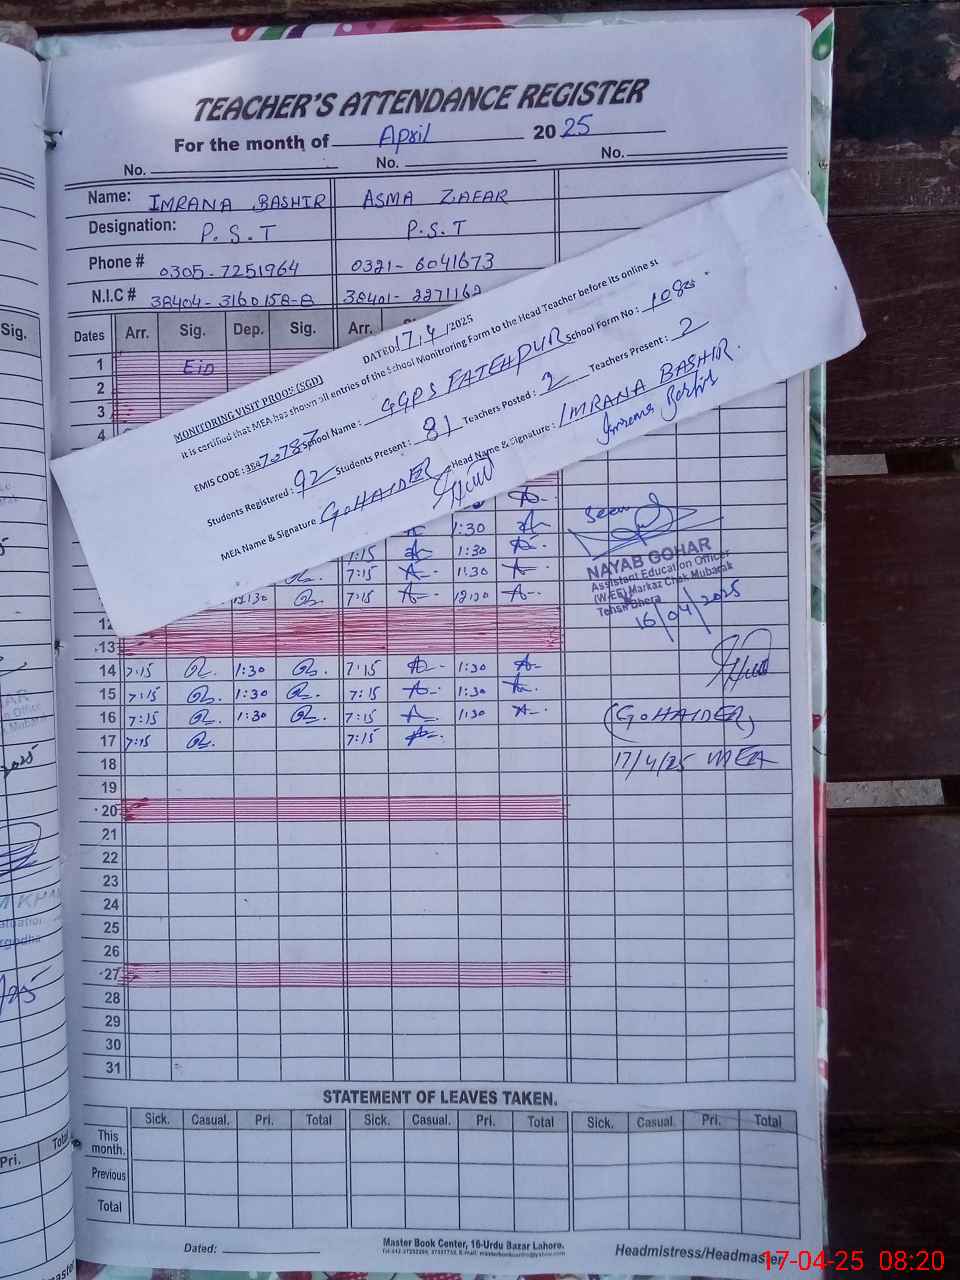 TEACHER'S ATTENDANCE REGISTER
For the month of April 2025
No. No. No.
Name: IMRANA BASHIR ASMA ZAFAR
Designation: P.S.T P.S.T
Phone # 0305-7251964 0321-6041673
N.I.C # 38404-3160158-8 38401-2271162
Dates Arr. Sig. Dep. Sig. Arr.
MONITORING VISIT PROOF (SGD) DATED: 17.4./2025
It is certified that MEA has shown all entries of the School Monitoring Form to the Head Teacher before its online
EMIS CODE: School Name: GGPS FATEHPUR School Form No:
Students Registered: 92 Students Present: 81 Teachers Posted: 2 Teachers Present: 2
MEA Name & Signature G.HAIDER Head Name & Signature: IMRANA BASHIR.
1 Eid
2
3
4
1:30
7:15 1:30
7:15 1:30
12:30 7:15 12:30
12
13
14 7:15 1:30 7:15 1:30
15 7:15 1:30 7:15 1:30
16 7:15 1:30 7:15 1:30
17 7:15 7:15
18
19
20
21
22
23
24
25
26
27
28
29
30
31
Seen
NAYAB GOHAR
Assistant Education Officer
(W-EE) Markaz Chak Mubarak
Tehsil Bhera
16/04/2025
(G.HAIDER)
17/4/25 MEA
STATEMENT OF LEAVES TAKEN.
Sick. Casual. Pri. Total Sick. Casual. Pri. Total Sick. Casual. Pri. Total
This month.
Previous
Total
Dated:
Master Book Center, 16-Urdu Bazar Lahore.
Headmistress/Headmaster
17-04-25 08:20
Sig.
Total
Pri.